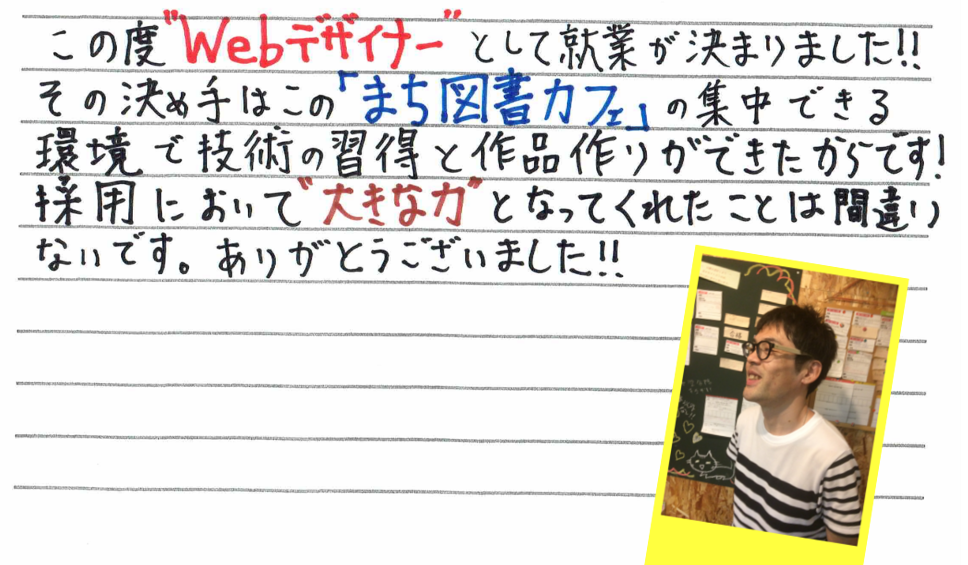 この度"Webデザイナー"として就業が決まりました!!
その決め手はこの「まち図書カフェ」の集中できる
環境で技術の習得と作品作りができたからです!
採用において"大きな力"となってくれたことは間違い
ないです。ありがとうございました!!